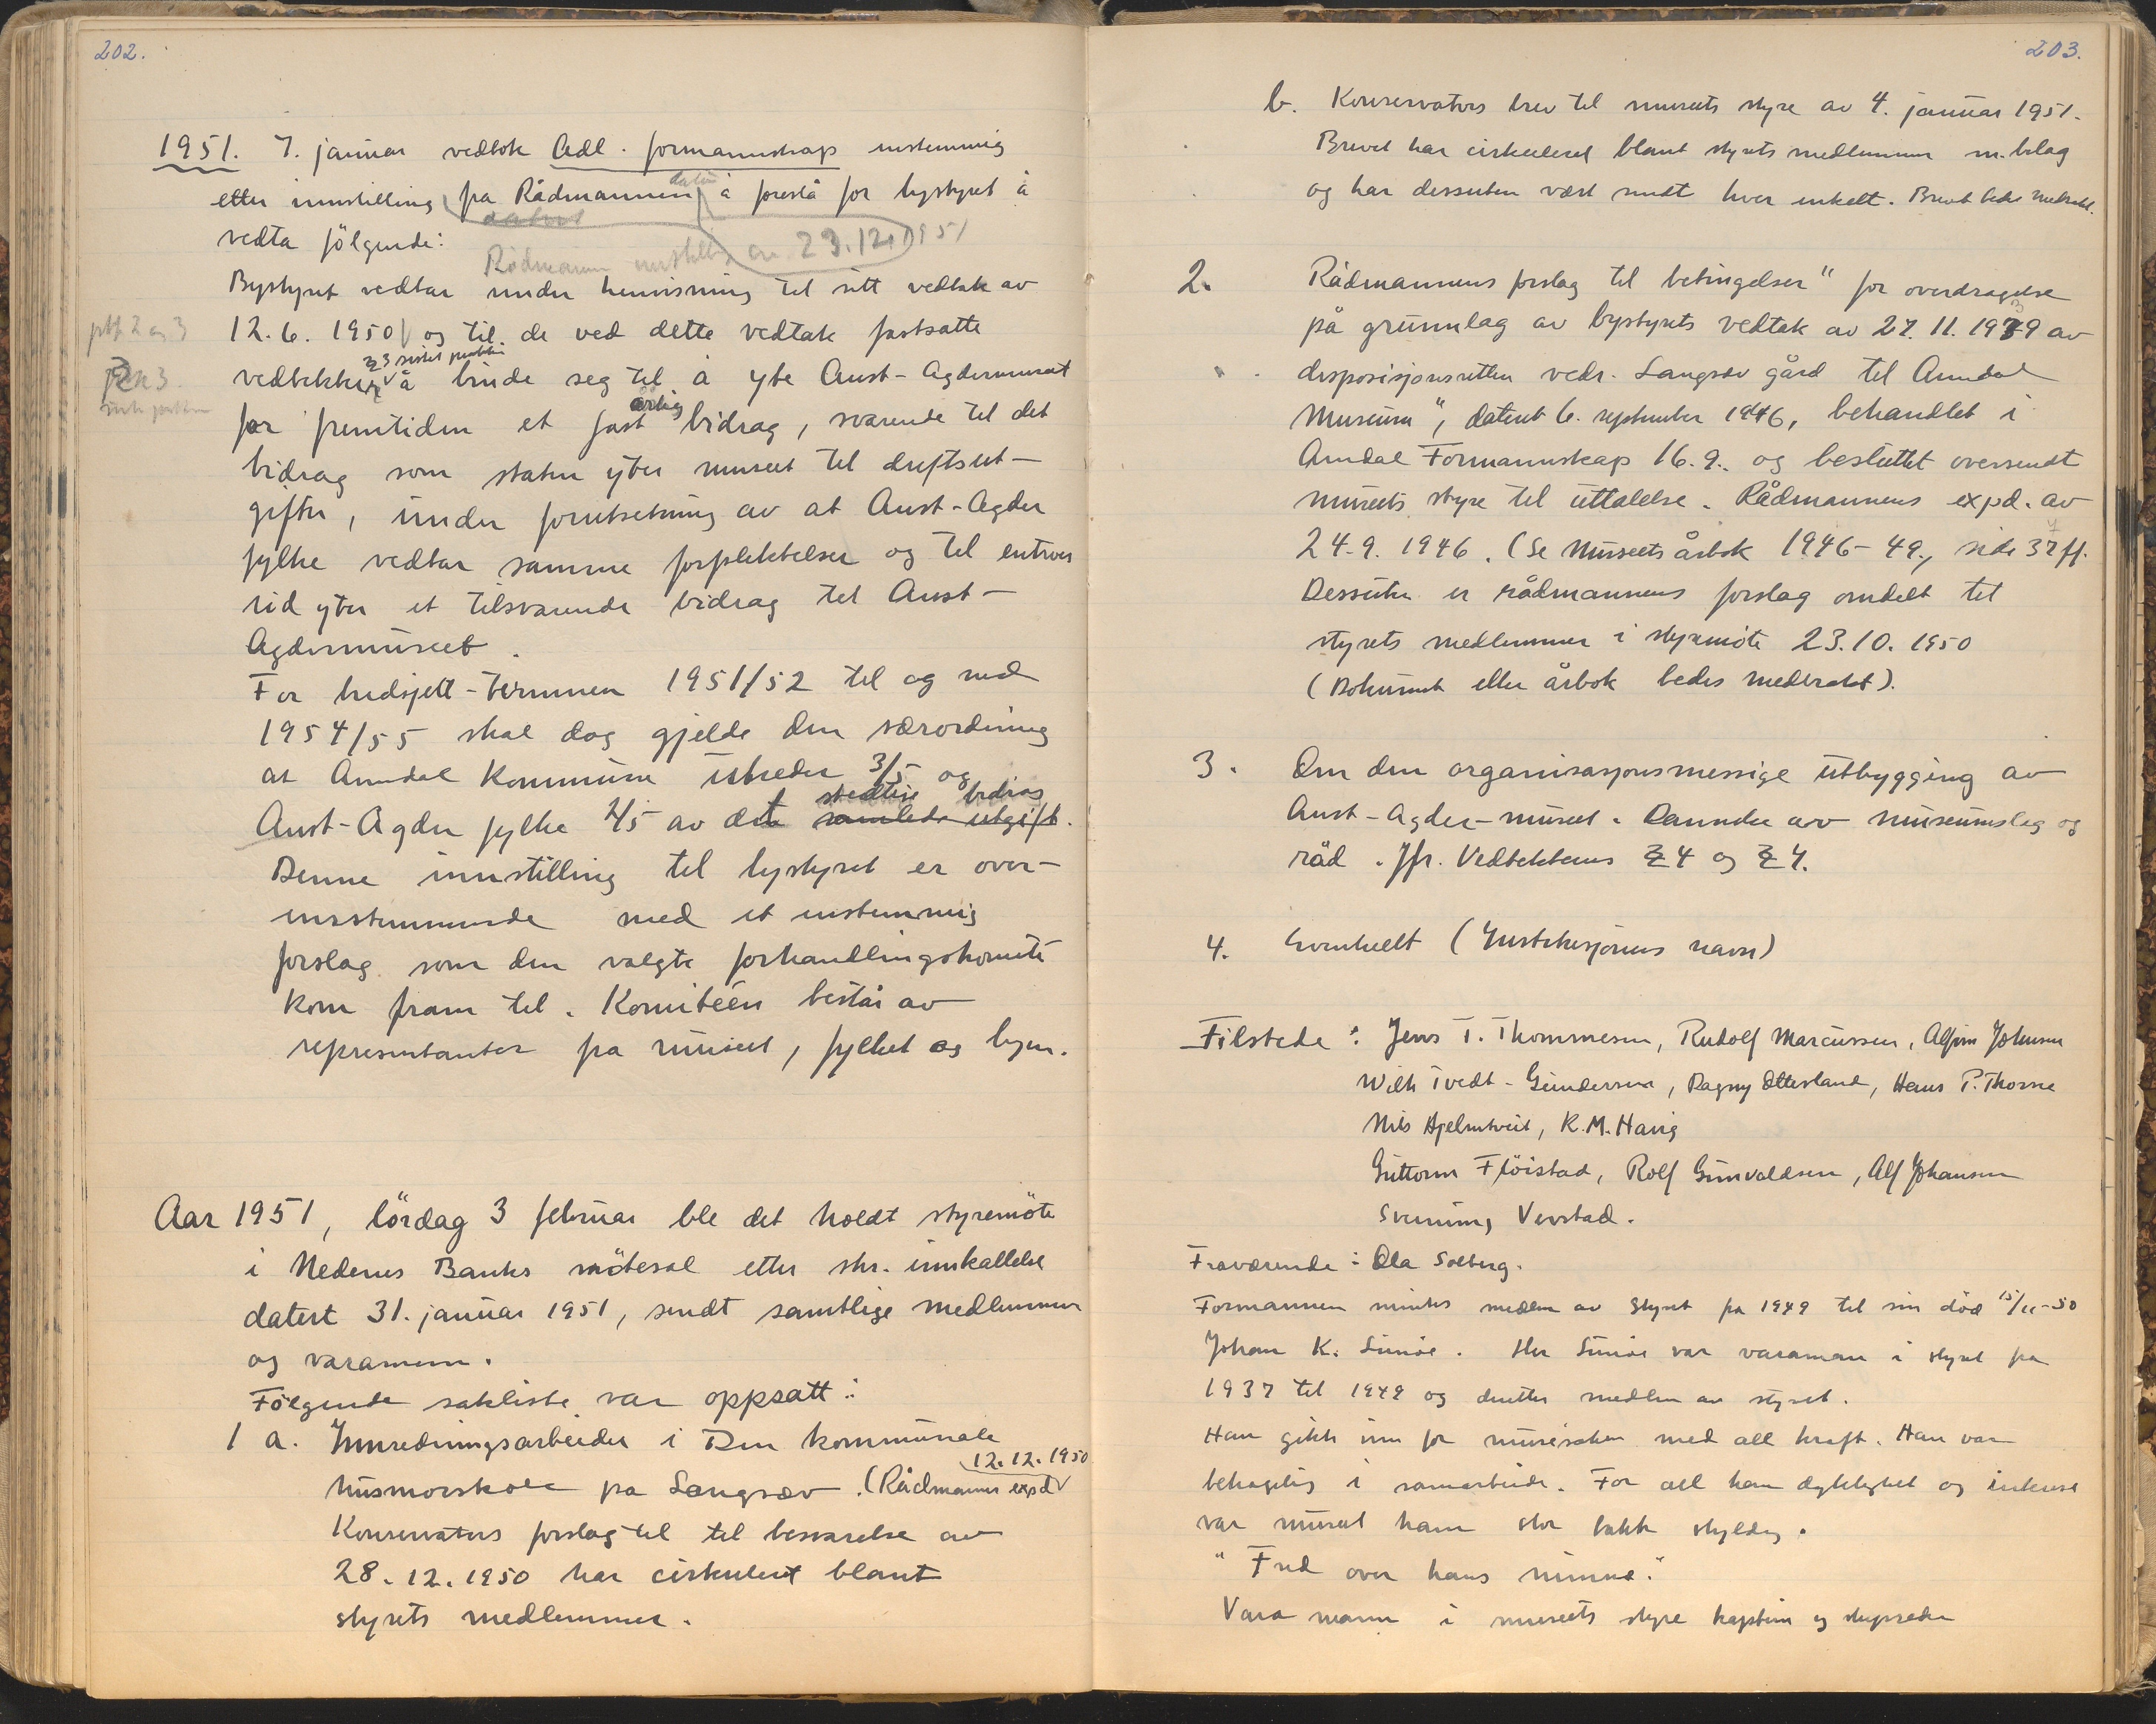 202.
1951. 7. januar vedtok Adl. formannskap enstemmig
etter innstilling fra Rådmannen å foreslå for bystyret å
vedta følgende:
Rådmannens innstilling av 23.12.1951
Bystyret vedtar under henvisning til sitt vedtak av
12.6. 1950 og til de ved dette vedtak fastsatte
§ 3 siste punktum
vedtekter å binde seg til å yte Aust-Agdermuseet
årlig
for fremtiden et fast bidrag, svarende til det
bidrag som staten yter museet til driftsut-
gifter, under forutsetning av at Aust-Agder
fylke vedtar samme forpliktelser og til enhver
tid yter et tilsvarende bidrag til Aust-
Agdermuseet.
For budsjett-terminen 1951/52 til og med
1954/55 skal dog gjelde den særordning
at Arendal Kommune utreder 3/5 og
stedlige bidrag
Aust-Agder fylke 2/5 av det samlede utgift.
Denne innstilling til bystyret er over-
ensstemmende med et enstemmig
forslag som den valgte forhandlingskomité
kom fram til. Komitéen består av
representanter fra museet, fylket og byen.
Aar 1951, lördag 3 februar ble det holdt styremöte
i Nedenes Banks mötesal etter skr. innkallelse
datert 31. januar 1951, sendt samtlige medlemmer
og varamenn.
Fölgende sakliste var oppsatt:
1 a. Innredningsarbeider i Den kommunale
12.12.1950
husmorskole på Langsæv. (Rådmannens expd
Konservators forslag til til besvarelse av
28.12.1950 har cirkulert blant
styrets medlemmer.
203.
b. Konservators brev til museets styre av 4. januar 1951.
Brevet har cirkulert blant styrets medlemmer m. bilag
og har dessuten vært sendt hver enkelt. Brevet bedes medbrakt.
2. Rådmannens forslag til betingelser" for overdragelse
på grunnlag av bystyrets vedtak av 27. 11. 1939 av
disposisjonsretten vedr. Langsæv gård til Arendal
Museum", datert 6. september 1946, behandlet i
Arendal Formannskap 16.9. og besluttet oversendt
museets styre til uttalelse. Rådmannens expd. av
24.9. 1946. (Se Museets årbok 1946-49, side 37 ff.
Dessuten er rådmannens forslag omdelt til
styrets medlemmer i styremöte 23.10. 1950
(Dokument eller årbok bedes medbrakt).
3. Om den organisasjonsmessige utbygging av
Aust-Agder-museet. Dannelse av museumslag og
råd. Jfr. Vedtektenes § 4 og § 7.
4. Eventuelt (Institusjonens navn)
Tilstede: Jens T. Thommesen, Rudolf Marcussen, Alfinn Johnsen
Wilh Tvedt-Gundersen, Dagny Ætterland, Hans P. Thorne
Nils Hjelmtveit, K. M. Haug
Guttorm Flöistad, Rolf Gunvaldsen, Alf Johansen
Svenning Vevstad.
Fraværende: Ola Solberg.
Formannen mintes medlem av styret fra 1949 til sin död 15/11-50
Johan K. Simöe. Herr Simöe var varaman i styret fra
1937 til 1949 og deretter medlem av styret.
Han gikk inn for museisaken med all kraft. Han var
behagelig i samarbeide. For all hans dyktighet og interesse
var museet ham stor takk skyldig.
"Fred over hans minne."
Vara mann i museets styre kaptein og skipsreder